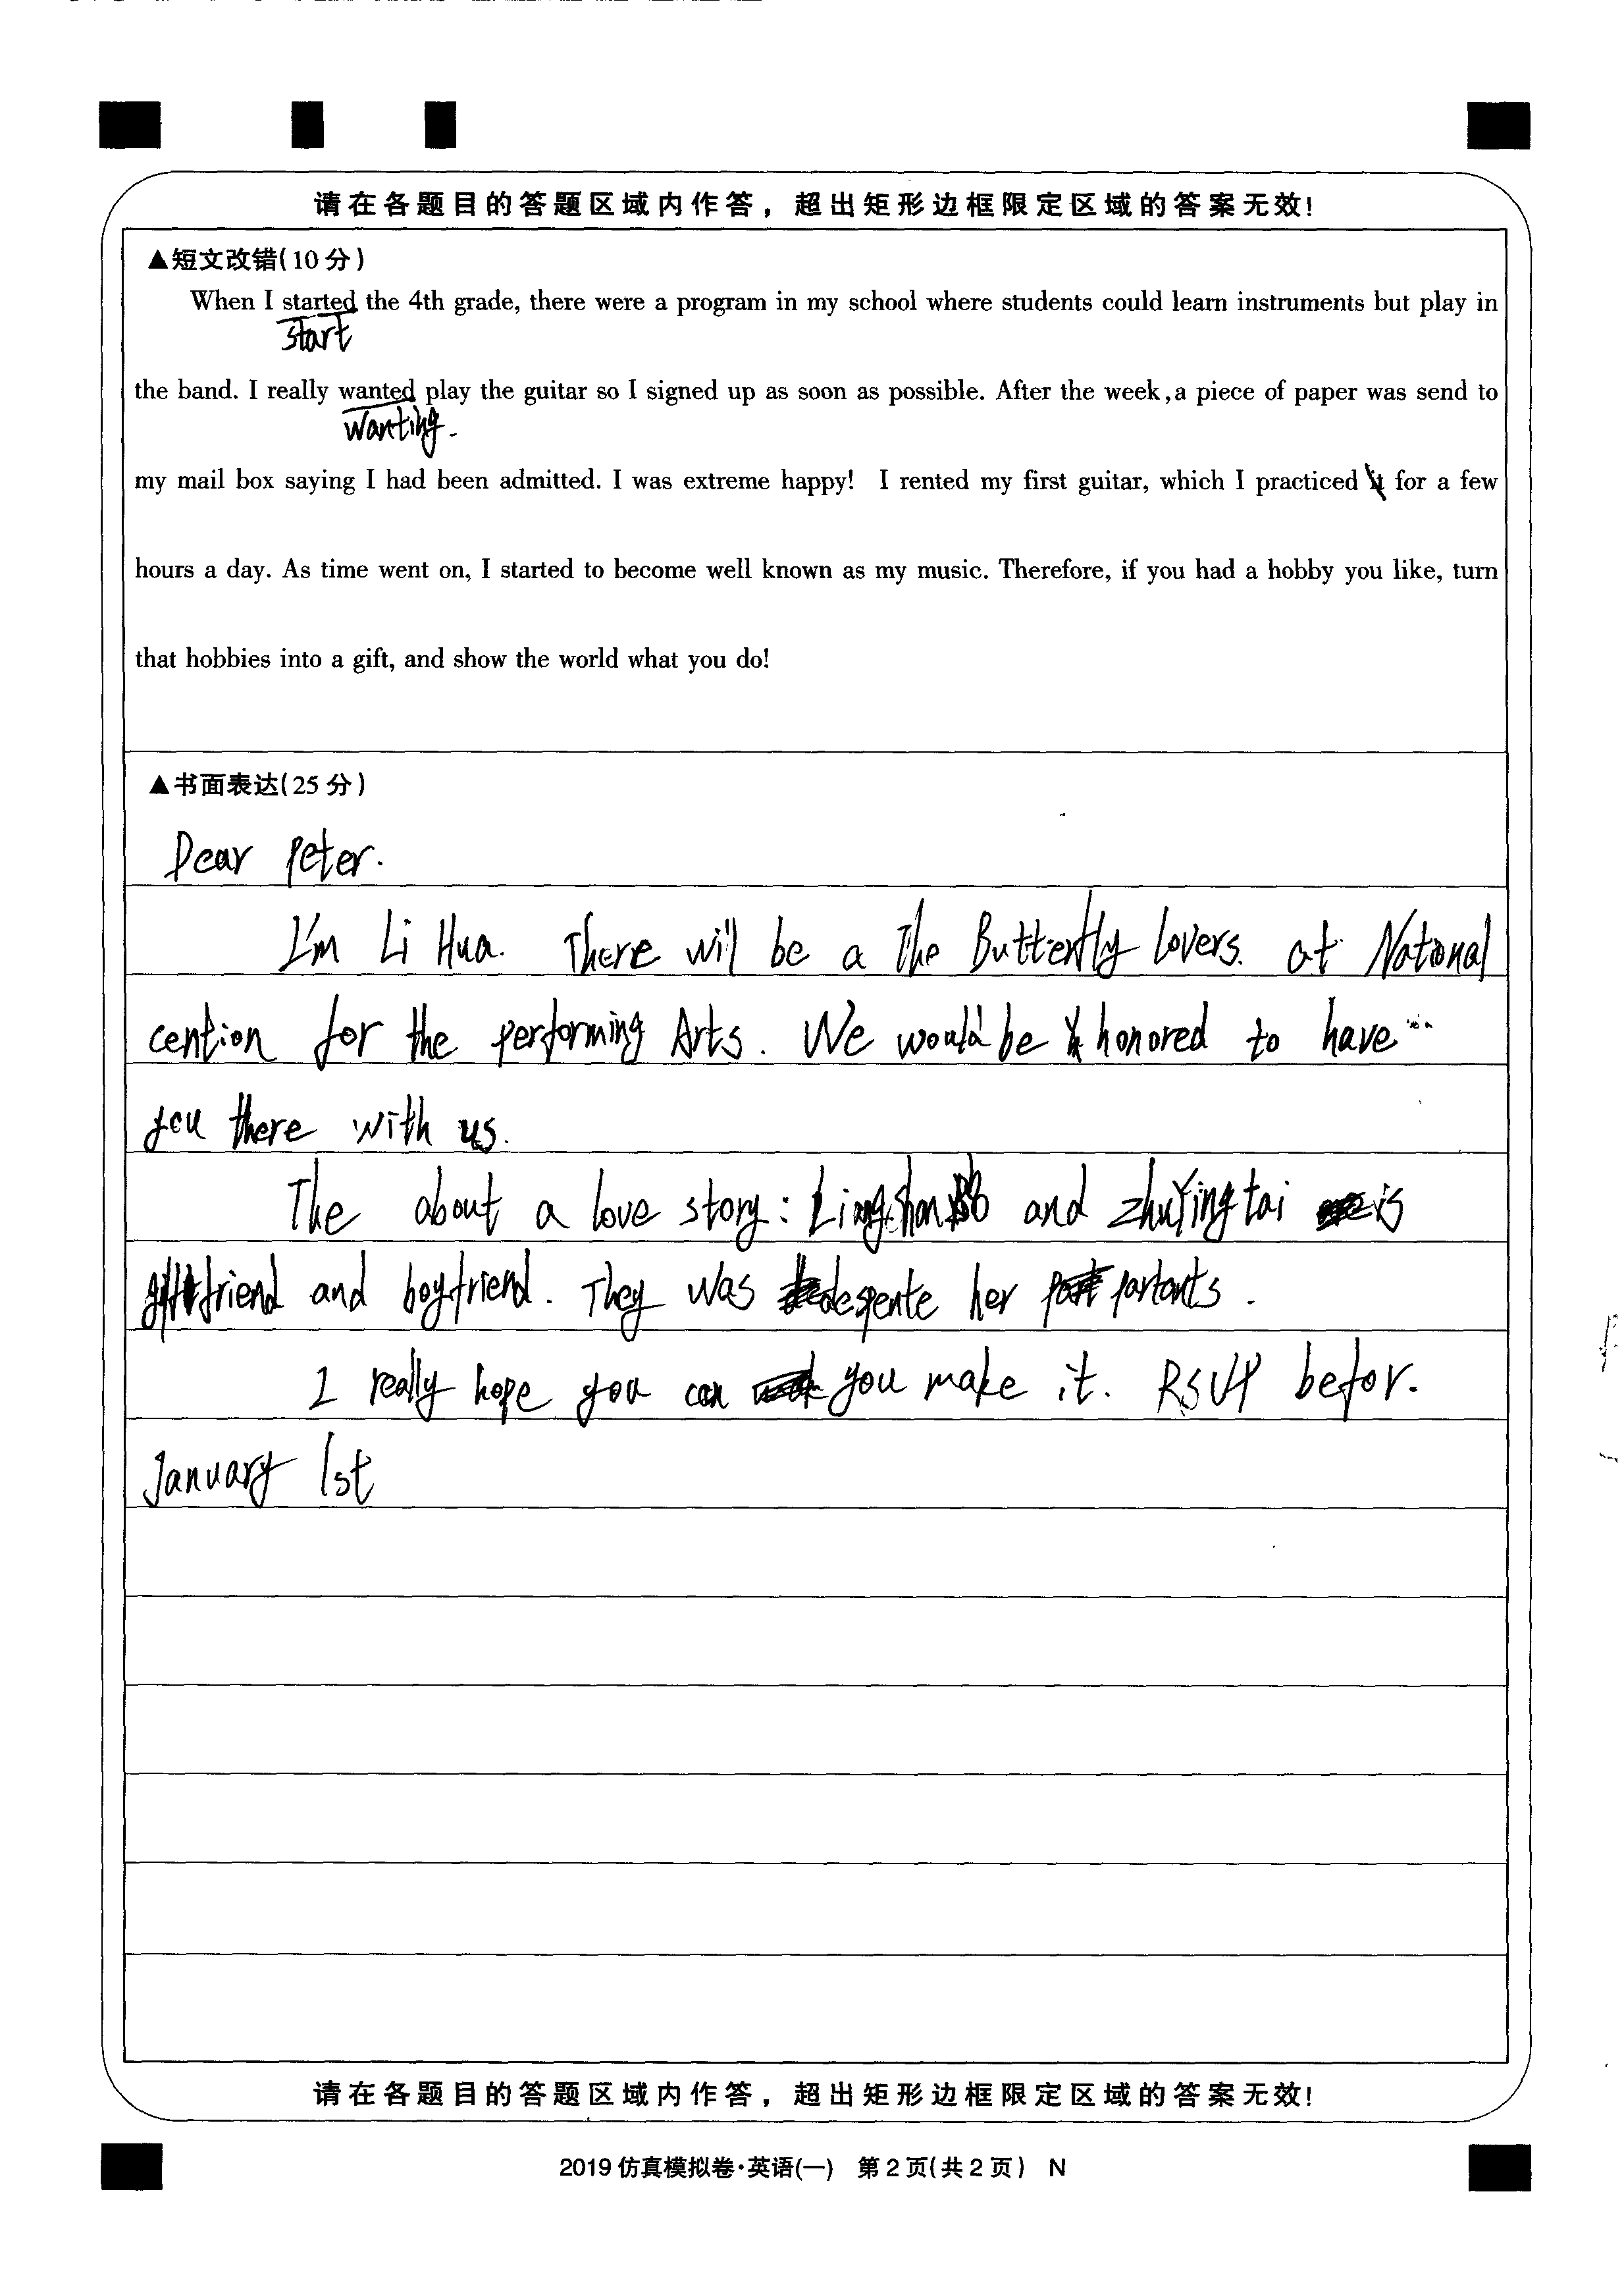 请在各题目的答题区域内作答，超出矩形边框限定区域的答案无效!
▲短文改错(10分)
When I started the 4th grade, there were a program in my school where students could learn instruments but play in
start
the band. I really wanted play the guitar so I signed up as soon as possible. After the week,a piece of paper was send to
wanting.
my mail box saying I had been admitted. I was extreme happy! I rented my first guitar, which I practiced it for a few
hours a day. As time went on, I started to become well known as my music. Therefore, if you had a hobby you like, turn
that hobbies into a gift, and show the world what you do!
▲书面表达(25分)
Dear Peter.
I'm Li Hua. There will be a The Butterfly lovers. at National
cention for the performing Arts. We would be honored to have
you there with us.
The about a love story: and ZhuYingtai is
friend and boyfriend. They was despente her partants.
I really hope you can you make it. RSVP befor.
January 1st
请在各题目的答题区域内作答，超出矩形边框限定区域的答案无效!
2019仿真模拟卷·英语(一) 第2页(共2页) N